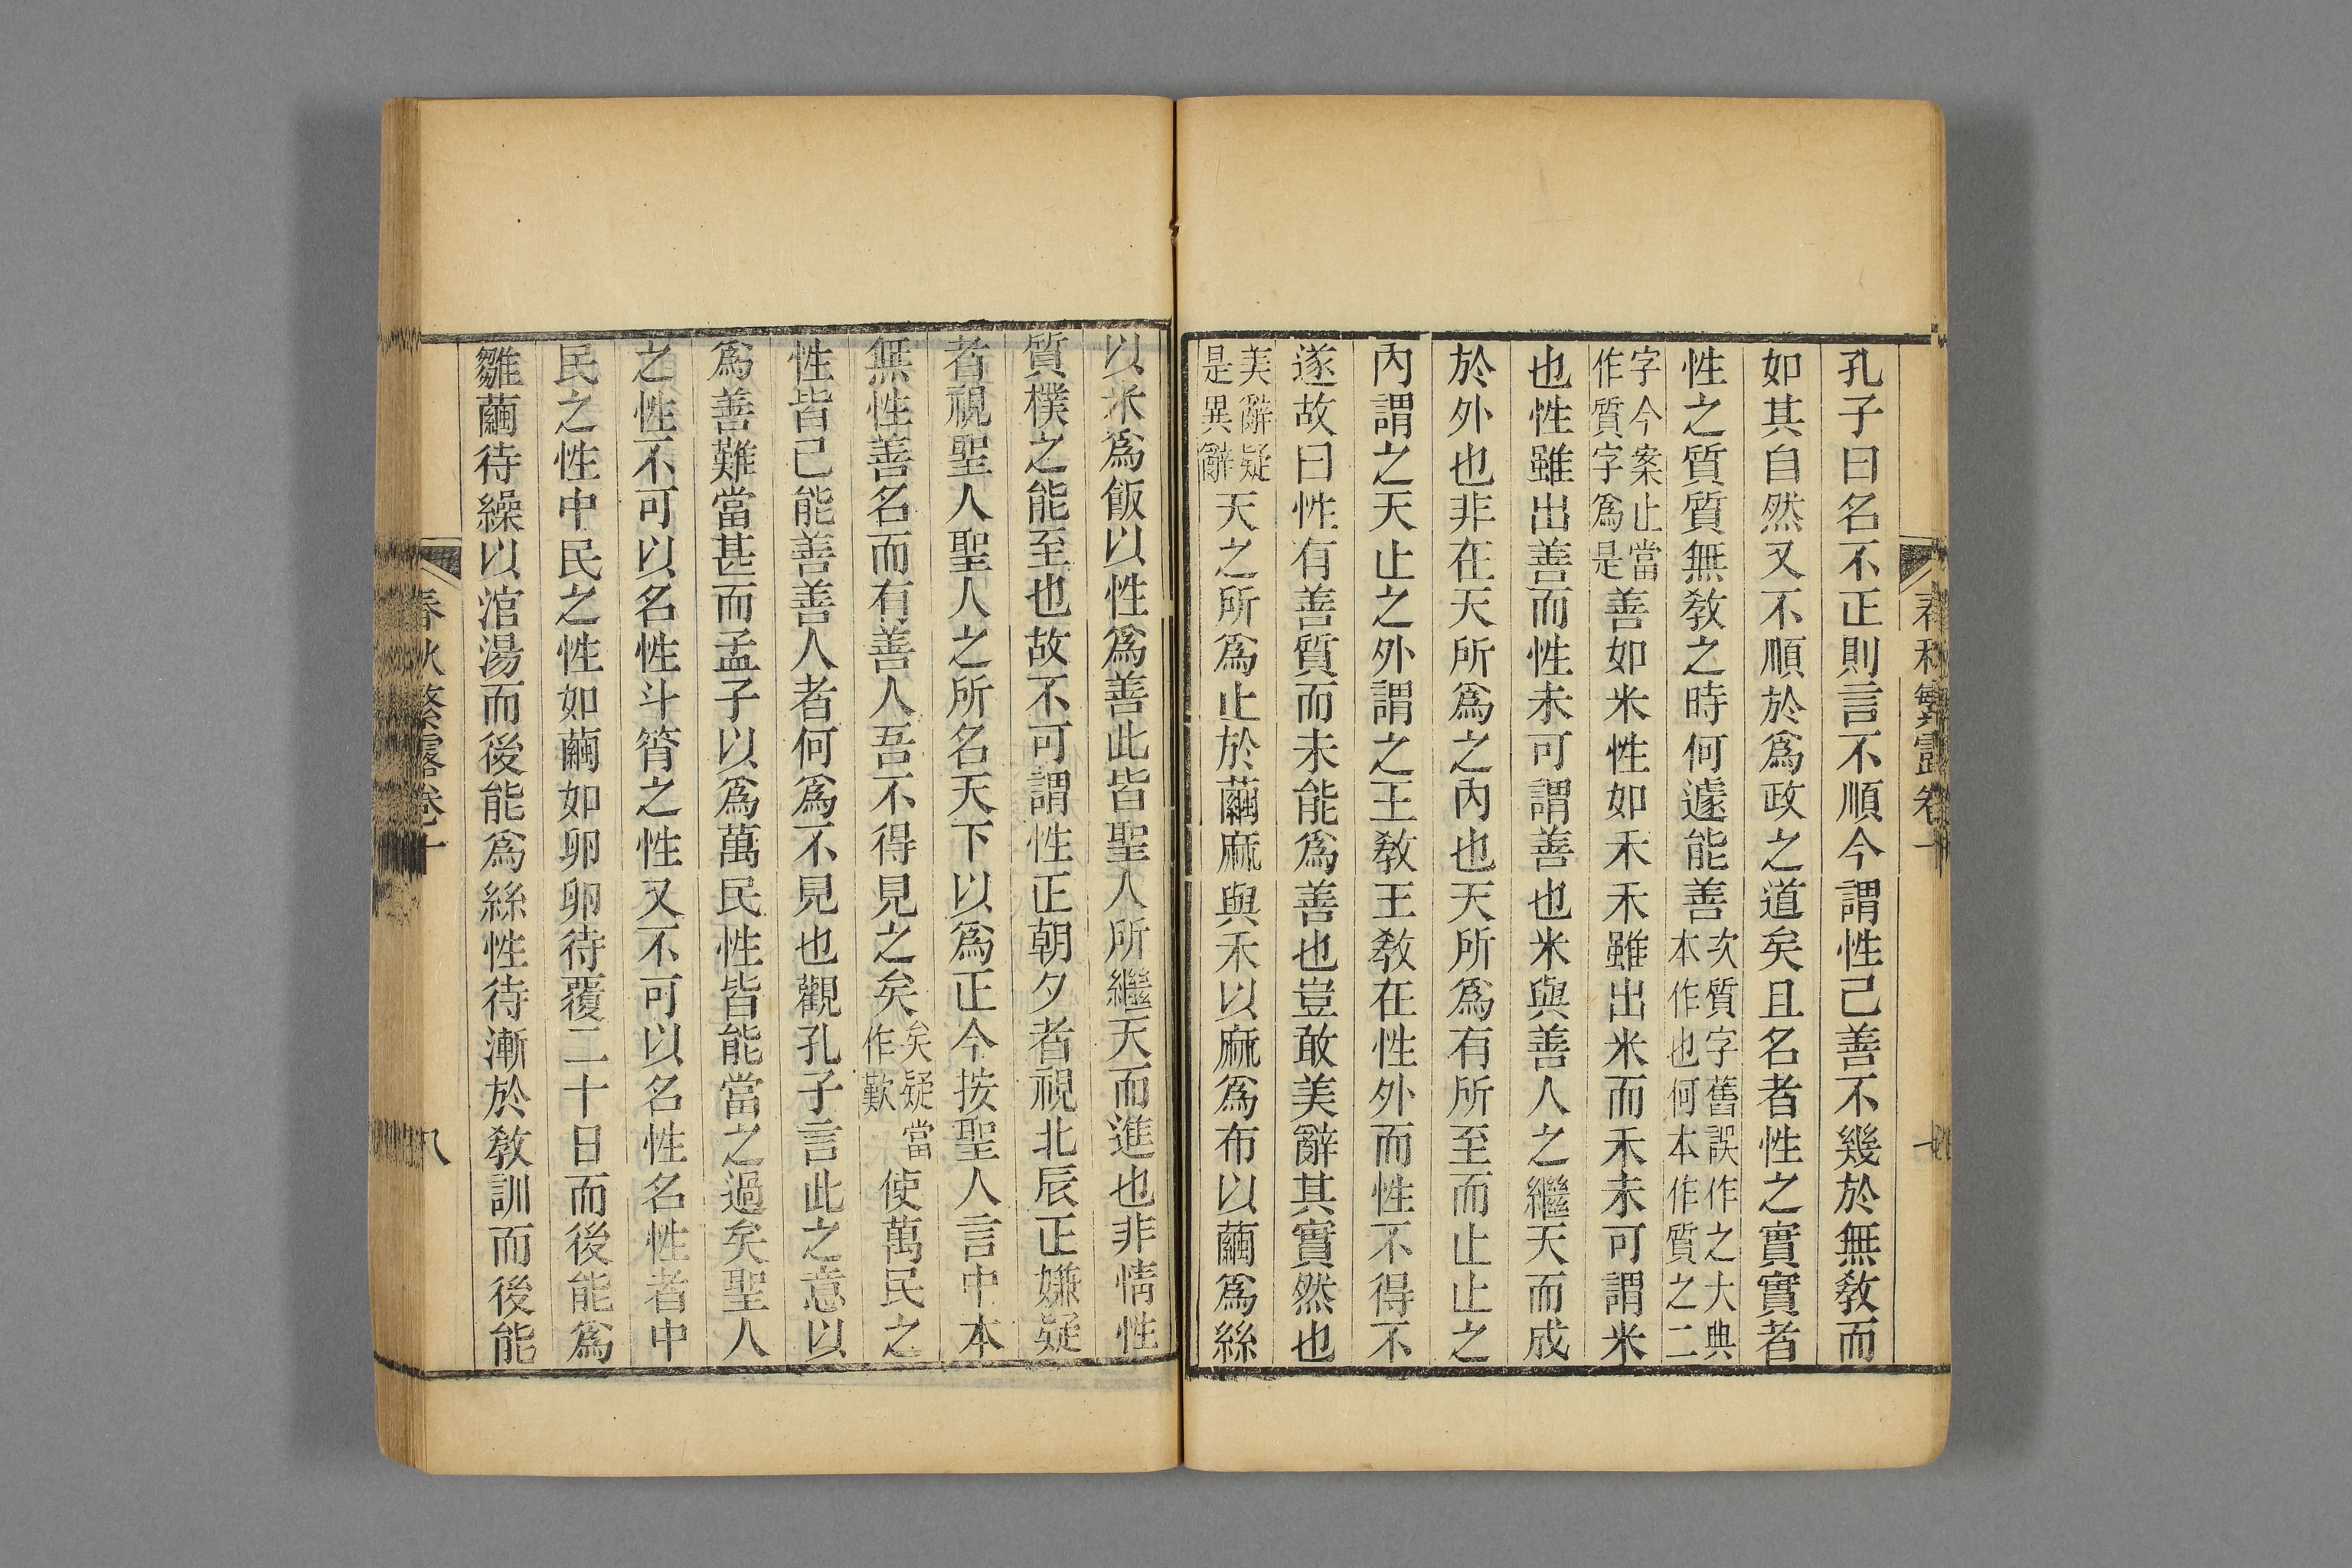 孔子曰名不正則言不順今謂性已善不幾於無敎而
如其自然又不順於爲政之道矣且名者性之實實者
性之質質無敎之時何遽能善次質字舊誤作之大典本作也何本作質之二
字今案止當作質字爲是善如米性如禾禾雖出米而禾未可謂米
也性雖出善而性未可謂善也米與善人之繼天而成
於外也非在天所爲之內也天所爲有所至而止止之
內謂之天止之外謂之王敎王敎在性外而性不得不
遂故曰性有善質而未能爲善也豈敢美辭其實然也
美辭疑是異辭天之所爲止於繭麻與禾以麻爲布以繭爲絲
以米爲飯以性爲善此皆聖人所繼天而進也非情性
質樸之能至也故不可謂性正朝夕者視北辰正嫌疑
者視聖人聖人之所名天下以爲正今按聖人言中本
無性善名而有善人吾不得見之矣矣疑當作歎使萬民之
性皆已能善善人者何爲不見也觀孔子言此之意以
爲善難當甚而孟子以爲萬民性皆能當之過矣聖人
之性不可以名性斗筲之性又不可以名性名性者中
民之性中民之性如繭如卵卵待覆二十日而後能爲
雛繭待繰以涫湯而後能爲絲性待漸於敎訓而後能
春秋繁露卷十
八